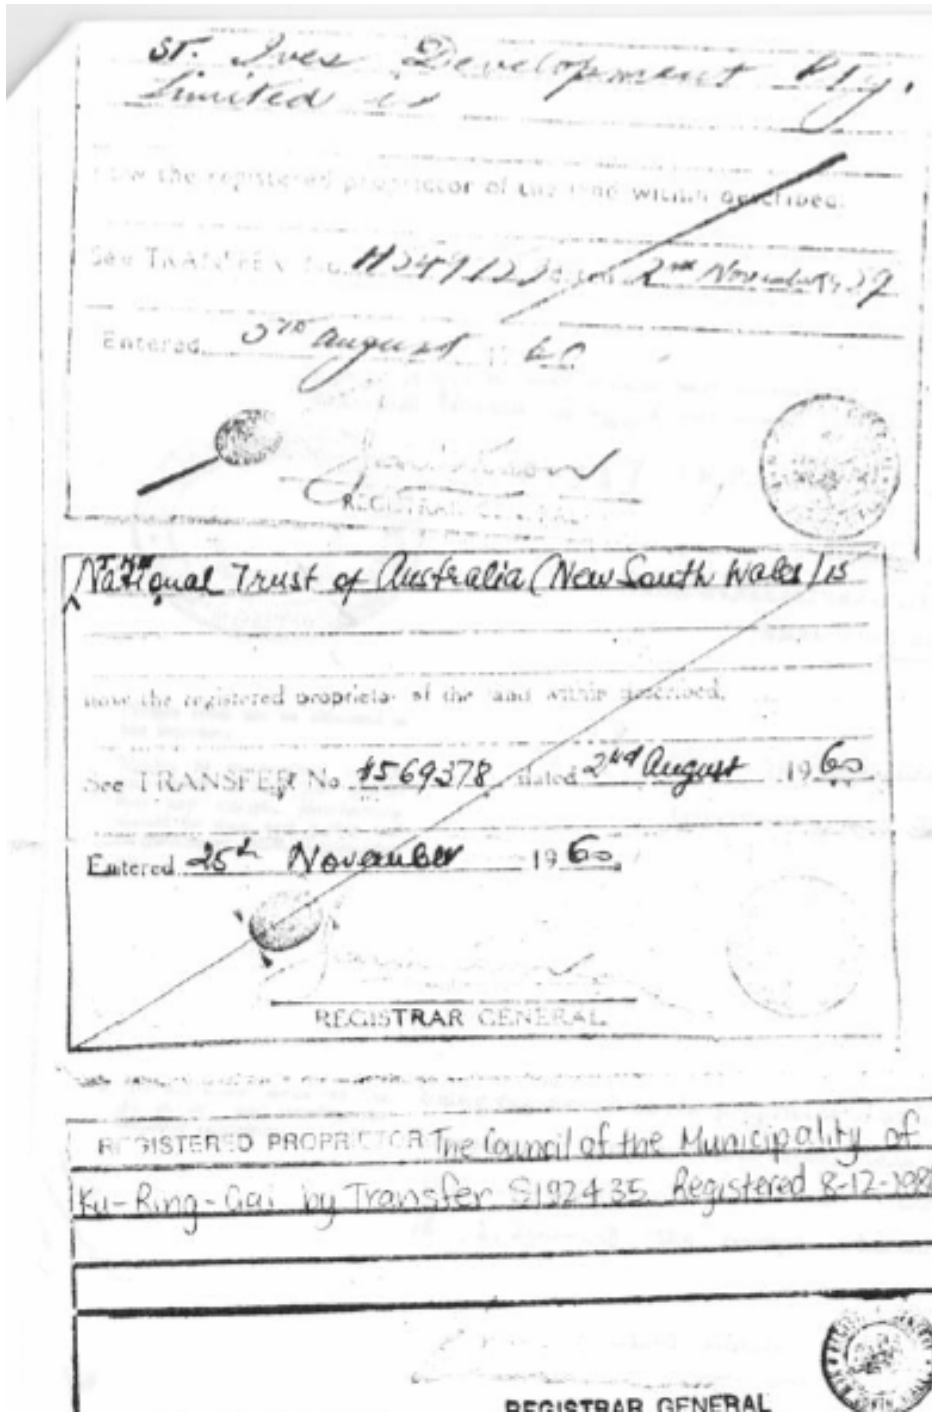 ST. Ives Development Pty.
Limited is
now the registered proprietor of the land within described.
See TRANSFER No. dated 2nd November 19
Entered August 19 60
REGISTRAR GENERAL
The
National Trust of Australia (New South Wales) is
now the registered proprietor of the land within described.
See TRANSFER No. 569378 dated 2nd August 1960
Entered 25th November 1960
REGISTRAR GENERAL
REGISTERED PROPRIETOR The Council of the Municipality of
Ku-Ring-Gai by Transfer S192435 Registered 8-12-198
REGISTRAR GENERAL